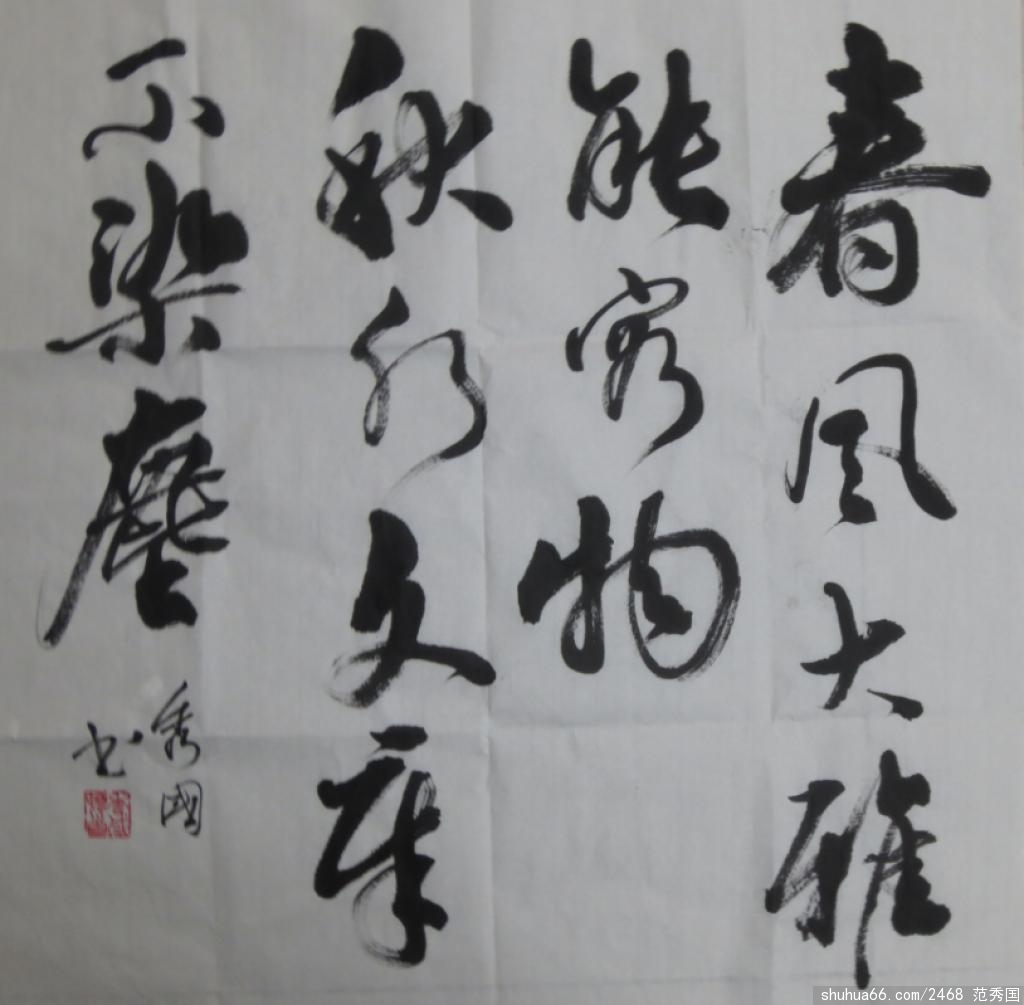 春风大雅
能容物
秋水文章
不染塵
秀國
书
shuhua66.com/2468 范秀国